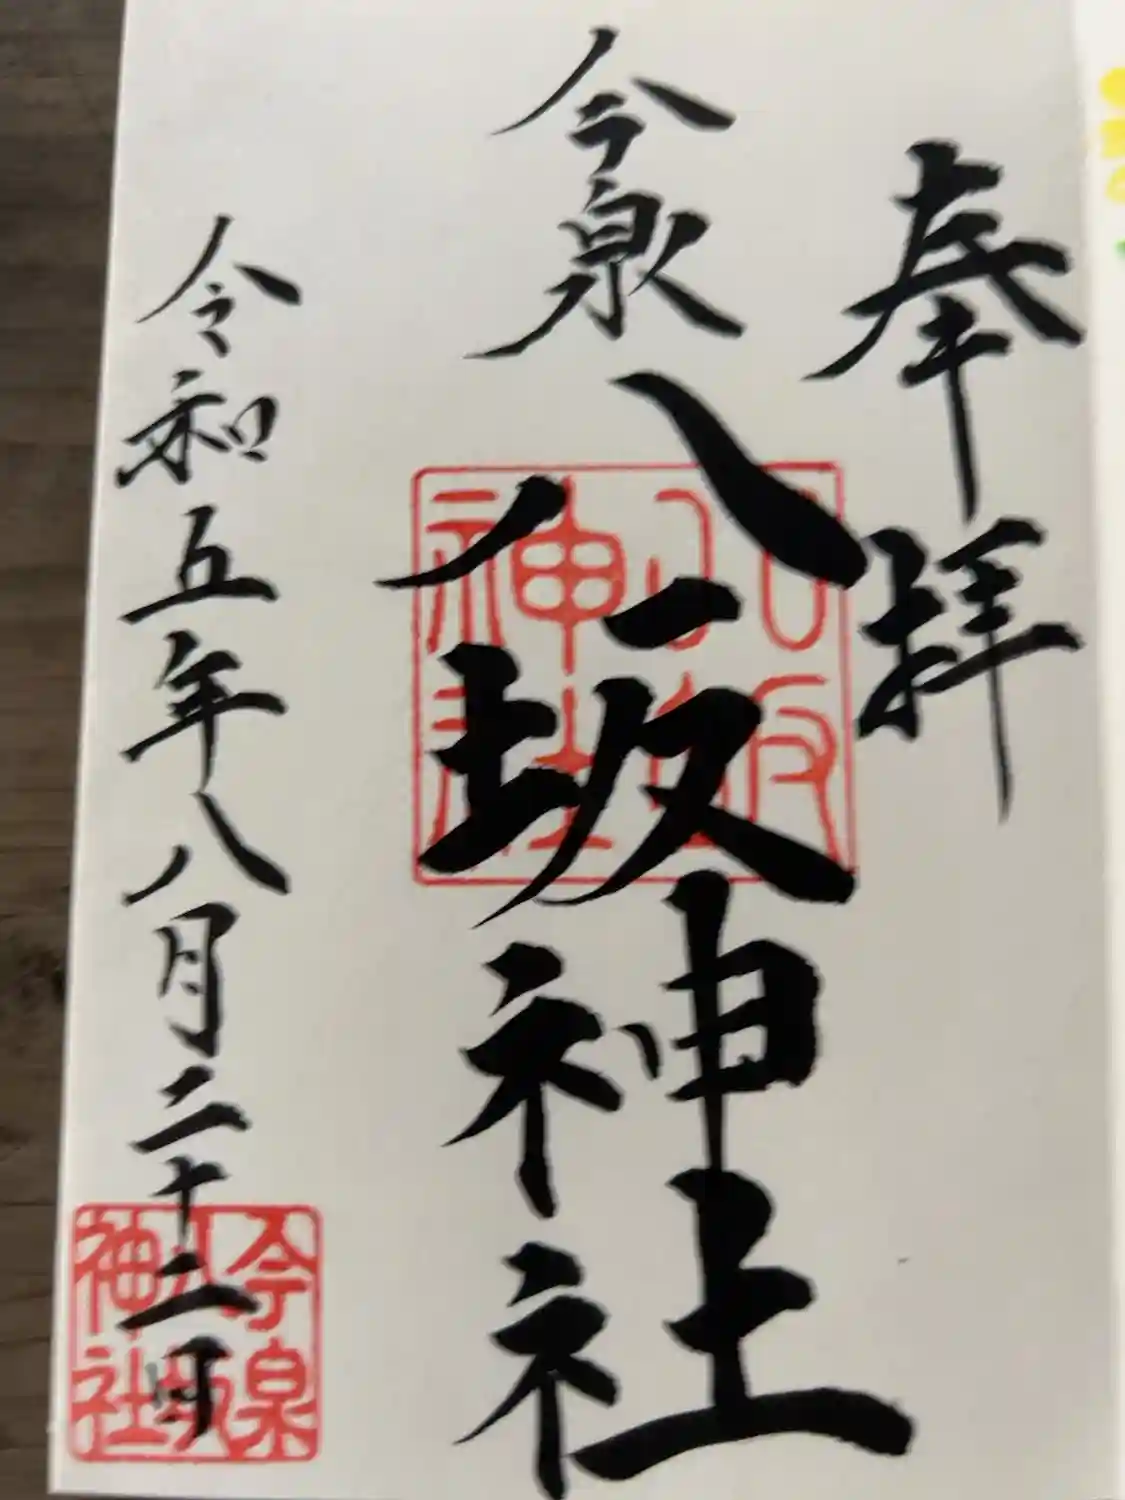 奉拝
今泉
八坂神社
八坂神社
令和五年八月二十二日
今泉八坂神社